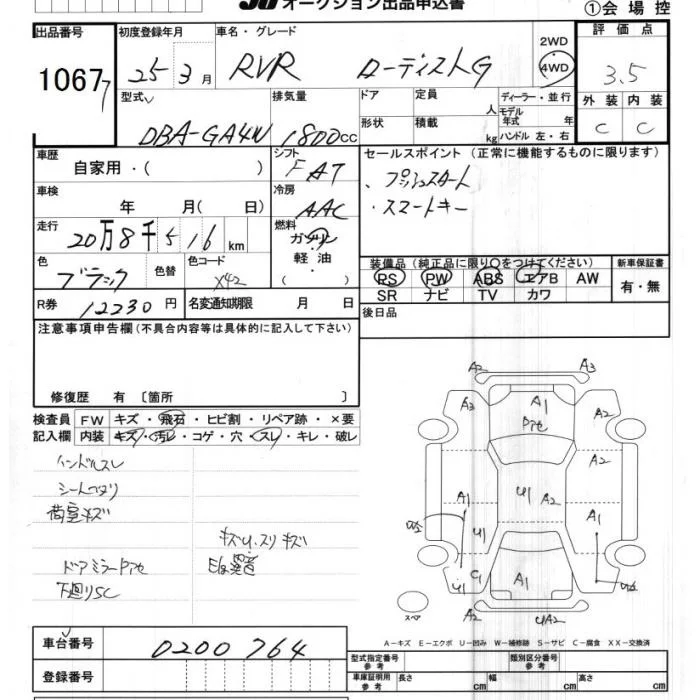 オークション出品申込書
①会場控
出品番号
10677
初度登録年月
25 3月
車名・グレード
RVR ローデストG
2WD
4WD
評価点
3.5
外装 内装
C C
型式
DBA-GA4W
排気量
1800cc
ドア
定員
人
形状
積載
kg
ディーラー・並行
モデル年式 年
ハンドル 左・右
車歴
自家用・( )
シフト
FAT
車検
年 月( 日)
冷房
AAC
走行
20万8千516km
燃料
ガソリン
軽油・
( )
色
ブラック
色替
色コード
X42
R券
12230円
名変通知期限 月 日
セールスポイント(正常に機能するものに限ります)
・プッシュスタート
・スマートキー
装備品(純正品に限り○をつけてください)
RS PW ABS エアB AW
SR ナビ TV カワ
新車保証書
有・無
後日品
注意事項申告欄(不具合内容等は具体的に記入して下さい)
修復歴 有〔箇所 〕
検査員記入欄
FW キズ・飛石・ヒビ割・リペア跡・×要
内装 キズ・汚レ・コゲ・穴・スレ・キレ・破レ
ハンドルスレ
シートヘタリ
荷室キズ
キズU.スリキズ
ドアミラーPアセ
下廻りSC
A2
A3
A3
A1
Pアセ
A2
A2
A1
U1
A2
A1
U1
U1
C1
A1
UA2
スペア
A-キズ E-エクボ U-凹み W-補修跡 S-サビ C-腐食 XX-交換済
車台番号
0200764
登録番号
型式指定番号
参考
類別区分番号
参考
車庫証明用
参考
長さ cm
幅 cm
高さ cm